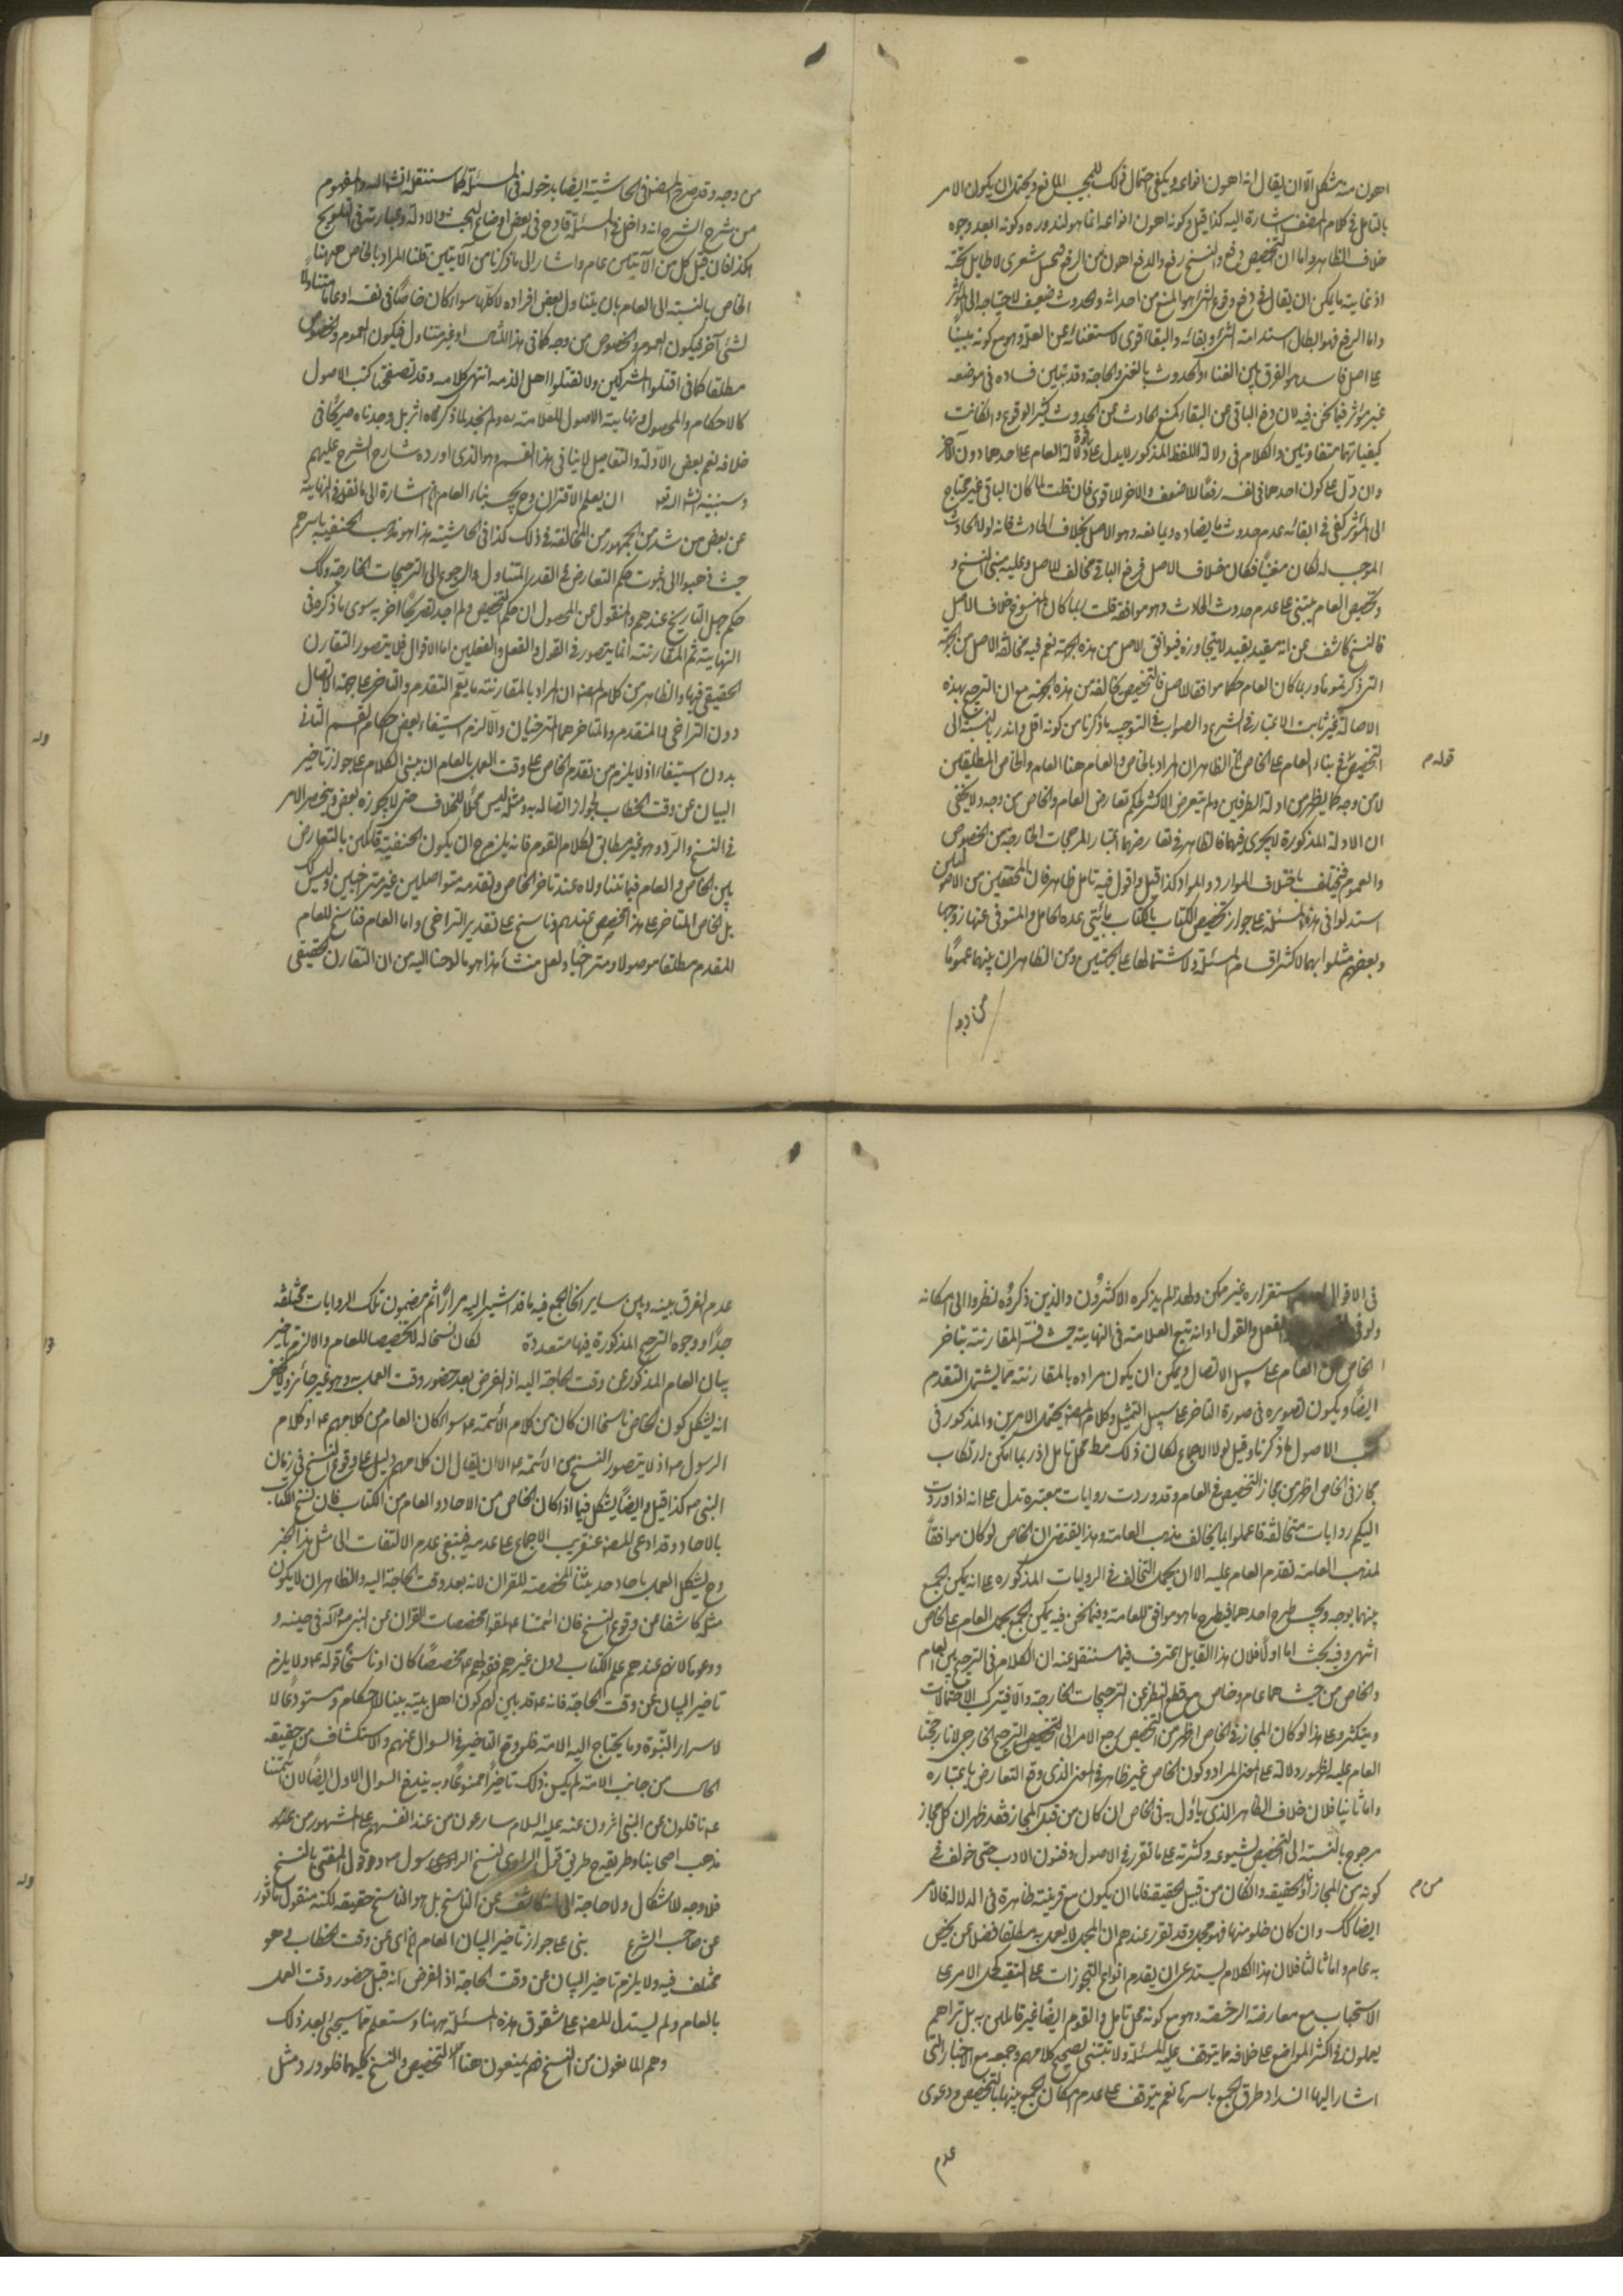 اهون منه مشكل الا ان يقال انه اهون انواعه ويكفى احتمال ذلك للمجيب المانع ويحتمل ان يكون الامر
بالتامل فى كلام المصنف اشارة اليه كذا قيل وكونه اهون انواعه انما هو لندوره وكونه ابعد وجوه
خلاف الظاهر واما ان التخصيص دفع والنسخ رفع والدفع اهون من الرفع فمحيل شعرى لا طايل تحته
اذ غاية ما يمكن ان يقال فى دفع وقوع الشئ هو المنع من احداثه والحدوث ضعيف لاحتياجه الى المؤثر
واما الرفع فهو ابطال استدامة الشئ وبقائه والبقاء اقوى لاستغنائه عن العلة وهو مع كونه مبنيا
على اصل فاسد هو الفرق بين البقاء والحدوث بالغنى والحاجة وقد تبين فساده فى موضعه
غير مؤثر فيما نحن فيه لان دفع الباقى من البقاء كمنع الحادث عن الحدوث كثير الوقوع وان كانت
كيفياتهما متفاوتين والكلام فى دلالة اللفظ المذكور لا يدل على قوة دلالة العام على احدهما دون الآخر
وان دل على كون احدهما فى نفسه رفعا للاضعف والآخر للاقوى فان قلت لما كان الباقى غير محتاج
الى المؤثر كفى فى ابقائه عدم حدوث ما يضاده ويمانعه وهو الاصل بخلاف الحادث فانه لولا الحادث
الموجب له لكان منفيا فكان خلاف الاصل فرفع الباقى مخالف للاصل وعليه مبنى النسخ و
وتخصيص العام يبتنى على عدم حدوث الحادث وهو موافقه قلت ربما كان المنسوخ خلاف الاصل
فالنسخ كاشف عن انه مقيد بقيد لا يتجاوزه فيوافق الاصل من هذه الجهة نعم فيه مخالفة الاصل من الجهة
التى ذكرتموها وربما كان العام حكما موافقا للاصل فالتخصيص يخالفه من هذه الجهة مع ان الترجيح بهذه
الاصالة غير ثابت الاعتبار فى الشرع والصواب فى التوجيه ما ذكرنا من كونه اقل واندر بالنسبة الى
التخصيص فى بناء العام على الخاص الخ الظاهر ان المراد بالخاص والعام هنا العام والخاص المطلقين
قوله م
لا من وجه كما يظهر من ادلة الطرفين ولم يتعرض الاكثر لحكم تعارض العام والخاص من وجه ولا يخفى
ان الادلة المذكورة لا يجرى فيهما فالظاهر فى تعارضهما اعتبار المرجحات الخارجة من الخصوص
والعموم فيختلف باختلاف الموارد والمواد كذا قيل واقول فيه تامل ظاهر فان المحققين من الاصوليين
استدلوا فى هذه المسئلة على جواز تخصيص الكتاب بالكتاب بآيتى عدة الحامل والمتوفى عنها زوجها
وبعضهم مثلوا بهما لاكثر اقسام المسئلة ولاشتمالها على الجهتين ومن الظاهر ان بينهما عموما
من وجه
من وجه وقد صرح المصنف فى الحاشية ايضا بدخوله فى المسئلة كما سننقله انشاء الله والمفهوم
من شرح الشرح انه داخل فى المسئلة قادح فى بعض اوضاع البحث والادلة وعبارته فى التلويح
هكذا فان قيل كل من الآيتين عام واشار الى ما ذكرنا من الآيتين قلنا المراد بالخاص ههنا
الخاص بالنسبة الى العام بان يتناول بعض افراده لا كلها سواء كان خاصا فى نفسه او عاما متناولا
لشئ آخر فيكون العموم والخصوص من وجه كما فى هذا المثال او غير متناول فيكون العموم والخصوص
مطلقا كما فى اقتلوا المشركين ولا تقتلوا اهل الذمة انتهى كلامه وقد تصفحنا كتب الاصول
كالاحكام والمحصول ونهاية الاصول للعلامة ره ولم نجد لما ذكر ره اثر بل وجدناه صريحا فى
خلافه نعم بعض الادلة والتفاصيل لا ينافى هذا القسم وهو الذى اورده شارح الشرح عليهم
وسنبينه انشاء الله تعه ان يعلم الاقتران وح يجب بناء العام الخ اشارة الى ما نقل فى النهاية
عن بعض من شذ من الجمهور من المخالفة فى ذلك كذا فى الحاشية هذا هو مذهب الحنفية باسرهم
حيث ذهبوا الى ثبوت حكم التعارض فى القدر المتناول والرجوع الى الترجيحات الخارجة وذلك
حكم جهل التاريخ عندهم والمنقول عن المحصول ان حكم التخصيص ولم اجد تصريحا اخر به سوى ما ذكره فى
النهاية ثم المقارنة انما يتصور فى القول والفعل والفعلين اما الاقوال فلا يتصور التقارن
الحقيقى فيها والظاهر من كلام المصنف ان المراد بالمقارنة ما يعم التقدم والتاخر على جهة الاتصال
دون التراخى والمتقدم والمتاخر هما المتراخيان والا لزم استيفاء بعض احكام القسم الثانى
بدون استيفاء اذ لا يلزم من تقدم الخاص على وقت العمل بالعام ان يبنى الكلام على جواز تاخير
البيان عن وقت الخطاب لجواز اتصاله به ومثله ليس محلا للخلاف حتى لا يجوزه بعض وينحصر الامر
فى النسخ والرد وهو غير مطابق لكلام القوم فانه يلزم ح ان يكون الحنفية قائلين بالتعارض
بين الخاص والعام فيما تناولاه عند تاخر الخاص وتقدمه متواصلين غير متراخيين وليس كذلك
بل الخاص المتاخر على هذا مخصص عندهم وناسخ على تقدير التراخى واما العام فناسخ للعام
المقدم مطلقا موصولا ومتراخيا ولعل منشأ هذا هو ما لوحنا اليه من ان التقارن الحقيقى
فى الاقوال استقراره غير ممكن ولهذا لم يذكره الاكثرون والذين ذكروه نظروا الى امكانه
ولو فى الفعل والقول او انه تبع العلامة فى النهاية حيث فسر المقارنة بتاخر
الخاص عن العام على سبيل الاتصال ويمكن ان يكون مراده بالمقارنة ما يشتمل التقدم
ايضا ويكون تصويره فى صورة التاخر على سبيل التمثيل وكلام المصنف يحتمل الامرين والمذكور فى
كتب الاصول ما ذكرنا وقيل لولا الاجماع لكان ذلك مط محل تامل اذ ربما امكن ارتكاب
مجاز فى الخاص اظهر من مجاز التخصيص فى العام وقد وردت روايات معتبرة تدل على انه اذا وردت
اليكم روايات متخالفة فاعملوا بما يخالف مذهب العامة وهذا يقتضى ان الخاص لو كان موافقا
لمذهب العامة تقدم العام عليه الا ان يحمل التخالف فى الروايات المذكورة على انه يمكن الجمع
بينهما بوجه ويجب طرح احدهما فيطرح ما هو موافق للعامة وفيما نحن فيه يمكن الجمع بحمل العام على الخاص
انتهى وفيه بحث اما اولا فلان هذا القايل اعترف فيما سننقل عنه ان الكلام فى الترجيح بين العام
والخاص من حيث هما عام وخاص مع قطع النظر عن الترجيحات الخارجة والا فيترك الاحتمالات
ويتكثر وعلى هذا لو كان المجاز فى الخاص اظهر من التخصيص يرجع الامر الى التخصيص الترجيح الخارجى لانا رجحنا
العام عليه لظهور دلالته على المعنى المراد وكون الخاص غير ظاهر فى المعنى الذى وقع التعارض باعتباره
واما ثانيا فلان خلاف الظاهر الذى ياؤل به فى الخاص ان كان من قبيل المجاز فقد ظهر ان كل مجاز
مرجوح بالنسبة الى التخصيص لشيوعه وكثرته على ما تقرر فى الاصول وفنون الادب حتى خولف فى
كونه من المجاز او الحقيقة وان كان من قبيل الحقيقة فاما ان يكون مع قرينة ظاهرة فى الدلالة فالامر
من م
ايضا كك وان كان خلوا منها فهو مجمل وقد تقرر عندهم ان المجمل لا يعمل به مطلقا فضلا عن تخصيص
به عام واما ثالثا فلان هذا الكلام يستدعى ان يقدم انواع التجوزات على التقييد كحمل الامر على
الاستحباب مع معارضة الرخصة وهو مع كونه محل تامل والقوم ايضا غير قائلين به بل تراهم
يعملون فى اكثر المواضع على خلافه مما يتوقف عليه المسئلة ولا يبتنى تصحيح كلامهم وجمعه مع الاخبار التى
اشار اليها انسداد طرق الجمع باسرها نعم يتوقف على عدم امكان الجمع بينهما بالتخصيص ودعوى
عدم
عدم الفرق بينه وبين ساير انحاء الجمع فيه ما قد اشير اليه مرارا ثم مضمون تلك الروايات مختلفة
جدا ووجوه الترجيح المذكورة فيها متعددة لكان نسخا له لا تخصيصا للعام والا لزم تاخير
بيان العام المذكور عن وقت الحاجة اليه اذ الفرض بعد حضور وقت العمل به وهو غير جائز ولا يخفى
انه يشكل كون الخاص ناسخا ان كان من كلام الائمة ع سواء كان العام من كلامهم ع او كلام
الرسول ص اذ لا يتصور النسخ من الائمة ع الا ان يقال ان كلامهم دليل على وقوع النسخ فى زمان
النبى ص كذا قيل وايضا يشكل فيما اذا كان الخاص من الاحاد والعام من الكتاب فان نسخ الكتاب
بالاحاد وقد ادعى المصنف عنقريب الاجماع على عدمه فينبغى عدم الالتفات الى مثل هذا الخبر
وح يشكل العمل باحاد حديثنا المخصصة للقران لانه بعد وقت الحاجة اليه والظاهر ان لا يكون
مثله كاشفا عن وقوع النسخ فان ائمتنا ع تلقوا مخصصات القران عن النبى ص وآله فى حينه و
ودعوها لانهم عندهم علم الكتاب دون غيرهم فقولهم ع مخصصا كان او ناسخا قوله ع ولا يلزم
تاخير البيان عن وقت الحاجة فانه ع قد بين لهم كون اهل بيته مبينا للاحكام ومستودعا لا
لاسرار النبوة وما يحتاج اليه الامة فلو وقع التاخير فى السوال عنهم والاستكشاف من حقيقة
الحال من جانب الامة لم يكن ذلك تاخيرا ممنوعا وبه يندفع السوال الاول ايضا لان ائمتنا
ع ناقلون عن النبى اثرون عنه عليه السلام شارعون من عند انفسهم على المشهور من
مذهب اصحابنا وطريقهم طريق قول الراوى نسخ الرسول ص وقول المفتى بالنسخ
فلا وجه للاشكال ولا حاجة الى انه كاشف عن الناسخ بل هو الناسخ حقيقة لكنه منقول ماثور
عن صاحب الشرع بنى على جواز تاخير البيان العام الخ اى عن وقت الخطاب وهو
مختلف فيه ولا يلزم تاخير البيان عن وقت الحاجة اذ الفرض انه قبل حضور وقت العمل
بالعام ولم يستدل المصنف على شقوق هذه المسئلة ههنا وستعلم مما سيجئ بعد ذلك
وهم المانعون من النسخ فهم يمنعون هنا التخصيص والنسخ كليهما فلو ورد مثل